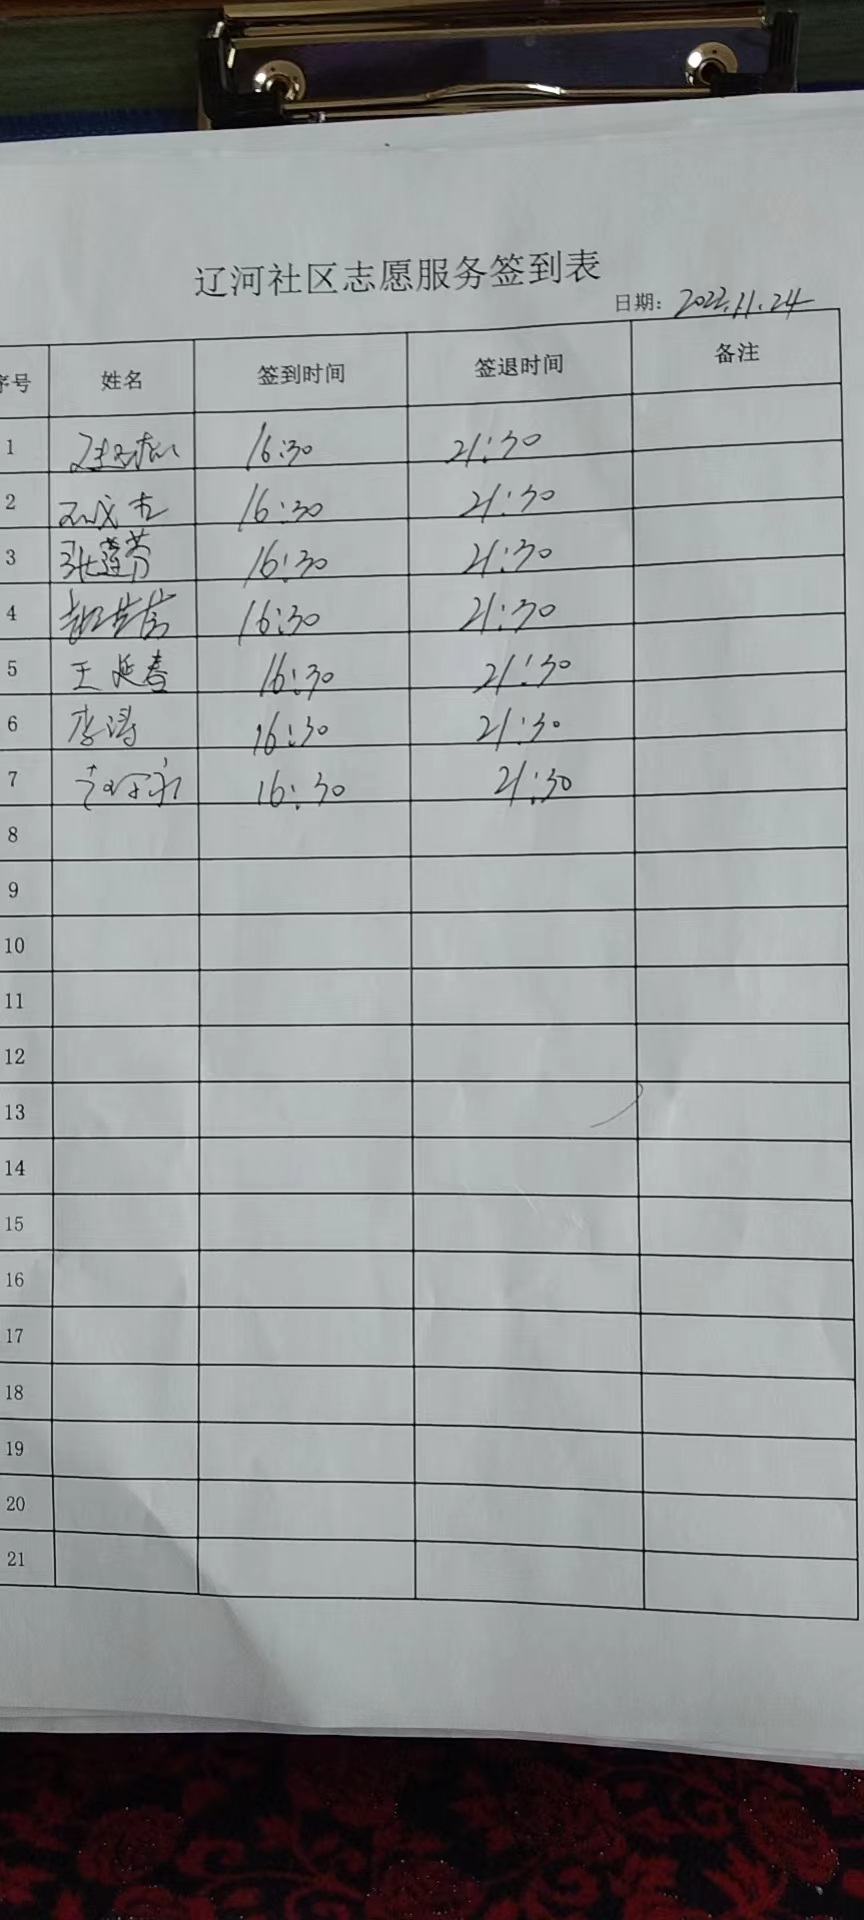 辽河社区志愿服务签到表
日期: 2022.11.24
序号 姓名 签到时间 签退时间 备注
1 16:30 21:30
2 16:30 21:30
3 张莲芳 16:30 21:30
4 16:30 21:30
5 王延春 16:30 21:30
6 李涛 16:30 21:30
7 16:30 21:30
8
9
10
11
12
13
14
15
16
17
18
19
20
21